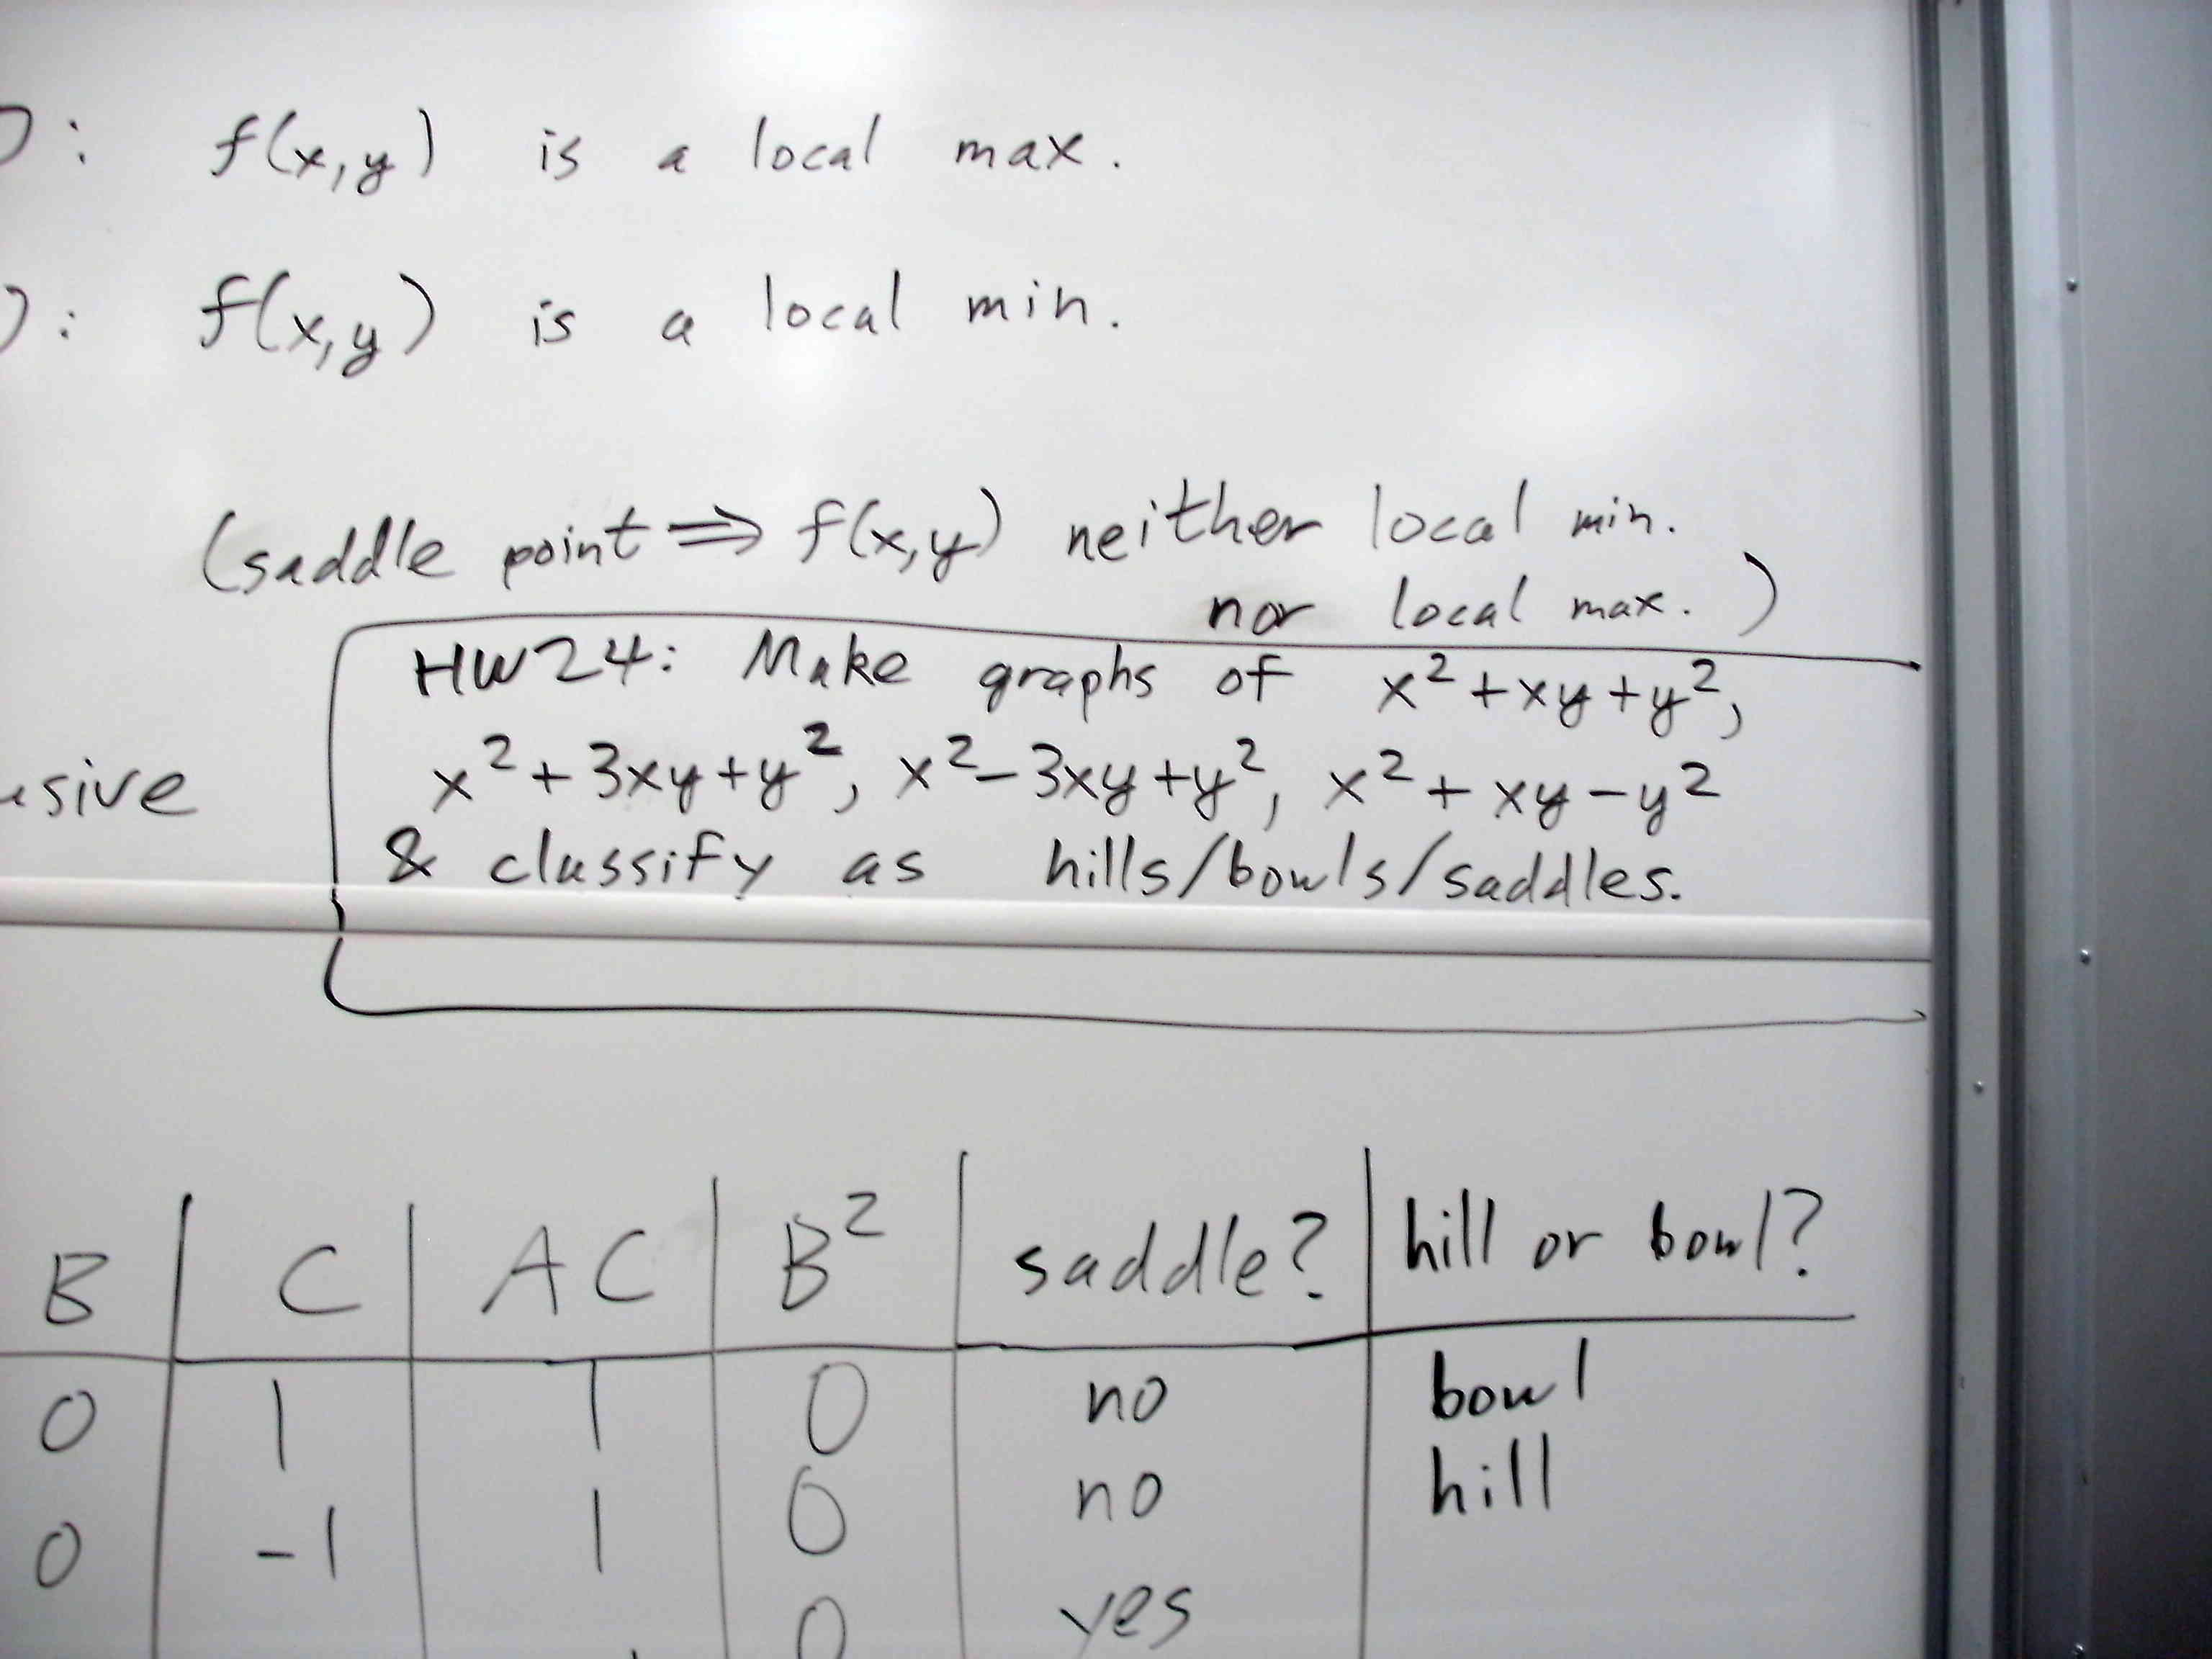 : f(x,y) is a local max.
: f(x,y) is a local min.
(saddle point ⇒ f(x,y) neither local min.
nor local max.)
HW24: Make graphs of x²+xy+y²,
x²+3xy+y², x²-3xy+y², x²+xy-y²
& classify as hills/bowls/saddles.
B | C | AC | B² | saddle? | hill or bowl?
0 | 1 | 1 | 0 | no | bowl
0 | -1 | 1 | 0 | no | hill
0 | yes